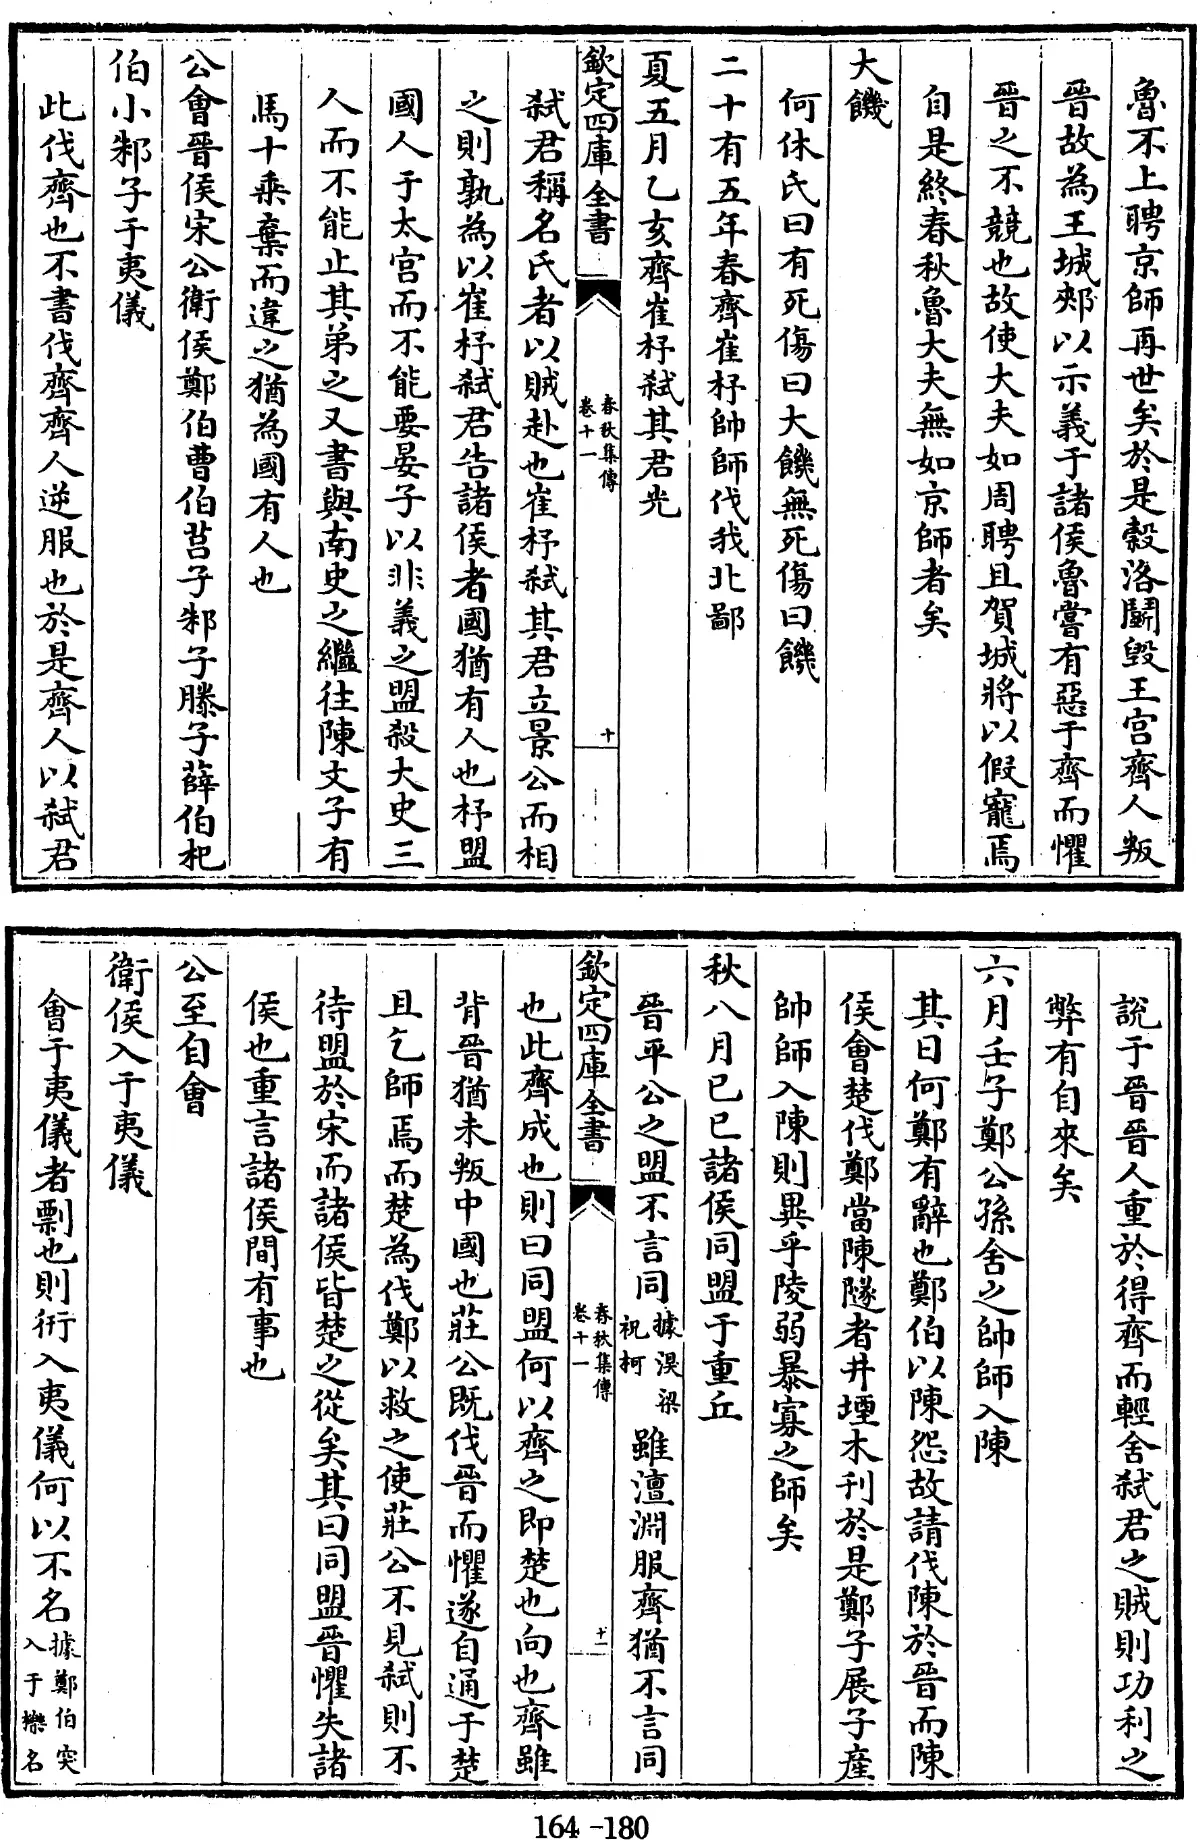 魯不上聘京師再世矣於是穀洛鬬毀王宮齊人叛
晉故為王城郟以示義于諸侯魯嘗有惡于齊而懼
晉之不競也故使大夫如周聘且賀城將以假寵焉
自是終春秋魯大夫無如京師者矣
大饑
何休氏曰有死傷曰大饑無死傷曰饑
二十有五年春齊崔杼帥師伐我北鄙
夏五月乙亥齊崔杼弑其君光
欽定四庫全書
春秋集傳
卷十一
十
弑君稱名氏者以賊赴也崔杼弑其君立景公而相
之則孰為以崔杼弑君告諸侯者國猶有人也杼盟
國人于太宮而不能要晏子以非義之盟殺大史三
人而不能止其弟之又書與南史之繼往陳文子有
馬十乘棄而違之猶為國有人也
公會晉侯宋公衛侯鄭伯曹伯莒子邾子滕子薛伯杞
伯小邾子于夷儀
此伐齊也不書伐齊齊人逆服也於是齊人以弑君
說于晉晉人重於得齊而輕舍弑君之賊則功利之
弊有自來矣
六月壬子鄭公孫舍之帥師入陳
其日何鄭有辭也鄭伯以陳怨故請伐陳於晉而陳
侯會楚伐鄭當陳隧者井堙木刊於是鄭子展子產
帥師入陳則異乎陵弱暴寡之師矣
秋八月己巳諸侯同盟于重丘
晉平公之盟不言同據湨梁祝柯雖澶淵服齊猶不言同
欽定四庫全書
春秋集傳
卷十一
十一
也此齊成也則曰同盟何以齊之即楚也向也齊雖
背晉猶未叛中國也莊公既伐晉而懼遂自通于楚
且乞師焉而楚為伐鄭以救之使莊公不見弑則不
待盟於宋而諸侯皆楚之從矣其曰同盟晉懼失諸
侯也重言諸侯間有事也
公至自會
衛侯入于夷儀
會于夷儀者剽也則衎入夷儀何以不名據鄭伯突入于櫟名
164-180